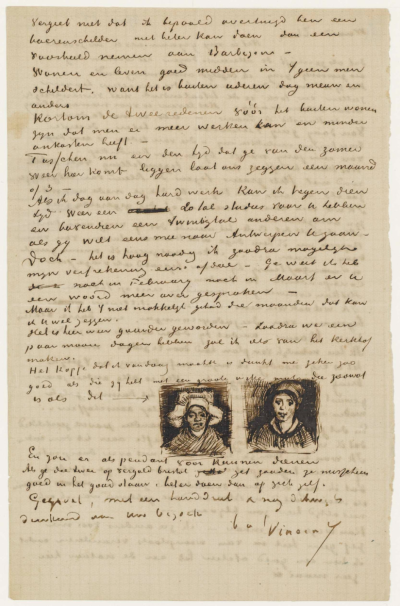 Vergeet niet dat ik bepaald overtuigd ben een
boerenschilder niet beter kan doen dan een
voorbeeld nemen aan Barbizon –
Wonen en leven goed midden in 't geen men
schildert, want het is buiten iederen dag nieuw en
anders
Kortom de twee redenen vóór het buiten wonen
zijn dat men er meer werken kan en minder
onkosten heeft –
Tusschen nu en den tijd dat ge van den zomer
weer hier komt liggen laat ons zeggen een maand
of 3 –
Als ik dag aan dag hard werk kan ik tegen dien
tijd weer een total studies voor U hebben
en bovendien een twintigtal anderen om
als gij wilt eens mee naar Antwerpen te gaan –
Doch – het is hoog noodig ik zoodra mogelijk
mijn verfrekening eens afdoe – Ge weet ik heb
noch in February noch in Maart er U
een woord meer over gesproken –
Maar ik heb 't niet makkelijk gehad die maanden dat kan
ik U wel zeggen.
Het is hier wat guurder geworden – Zoodra we een
paar mooie dagen hebben zal ik iets van het kerkhof
maken.
Het kopje dat ik vandaag maakte is dunkt me zeker zoo
goed als die gij hebt met een groote die zoowat
is als dit
En zou er als pendant voor kunnen dienen
Als ge die twee op verguld bristol zet zouden ze misschien
goed in het goud staan: beter doen dan op zich zelf.
Gegroet, met een handdruk & nog dikwijls
denkend aan uw bezoek
t. à t. Vincent